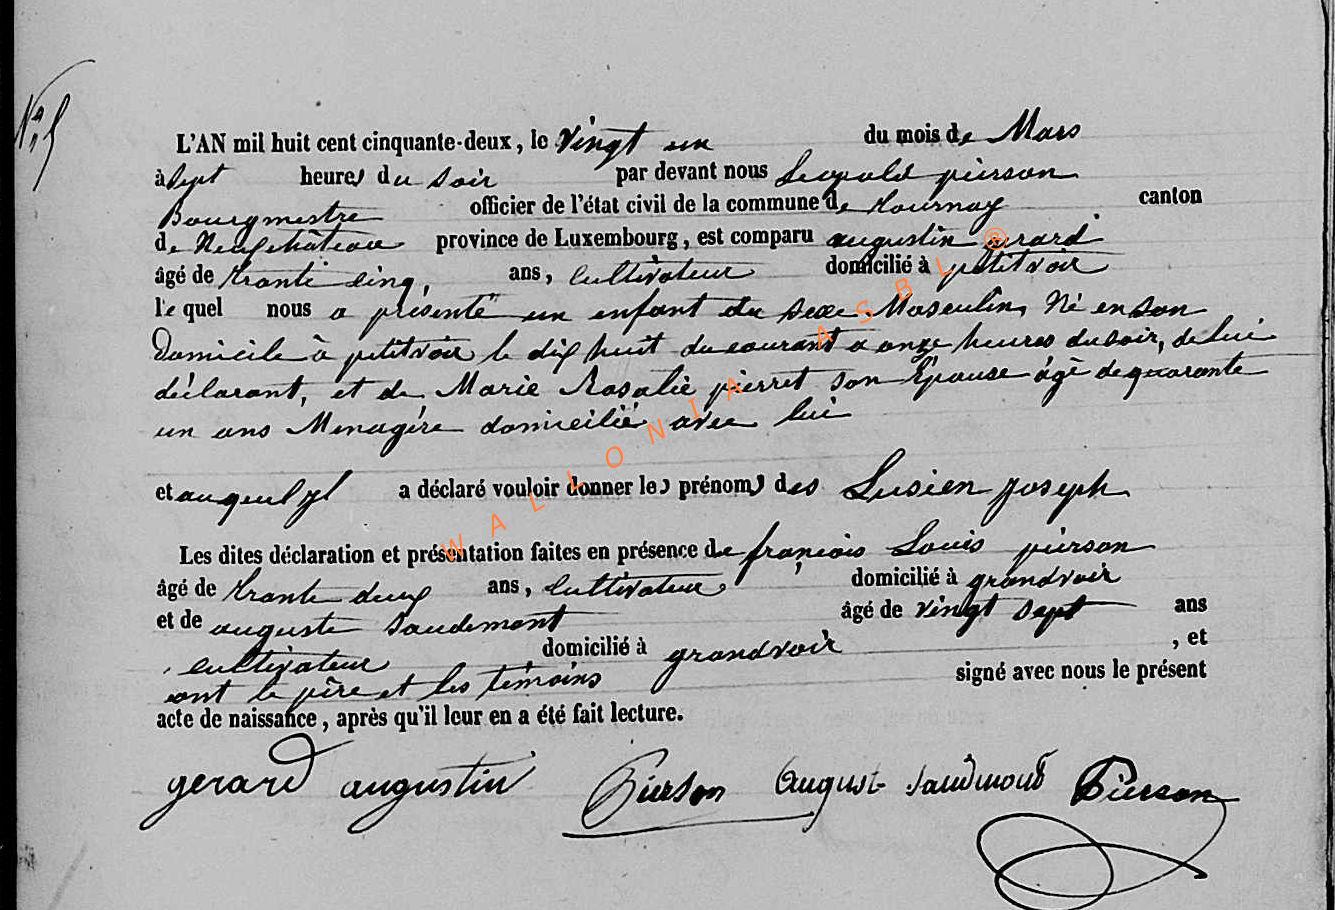 N° 5
L'AN mil huit cent cinquante-deux, le vingt un du mois de Mars
à sept heures du soir par devant nous Leopold pierson
Bourgmestre officier de l'état civil de la commune de tournay canton
de Neufchâteau province de Luxembourg, est comparu augustin gerard
âgé de trante cinq, ans, cultivateur domicilié à petitvoir
lequel nous a présenté un enfant du sexe Masculin, Né en son
Domicile à petitvoir le dix huit du courant a onze heures du soir, de lui
déclarant, et de Marie Rosalie pierret son Épouse âgé de quarante
un ans Menagére domicilié avec lui
et auquel il a déclaré vouloir donner les prénoms des Lusien joseph
Les dites déclaration et présentation faites en présence de françois Louis pierson
âgé de trante deux ans, cultivateur domicilié à grandvoir
et de auguste saudemont âgé de vingt sept ans
, cultivateur domicilié à grandvoir , et
ont le père et les témoins signé avec nous le présent
acte de naissance, après qu'il leur en a été fait lecture.
gerard augustin Pierson August saudmont Pierson
WALLONIA ASBL ®